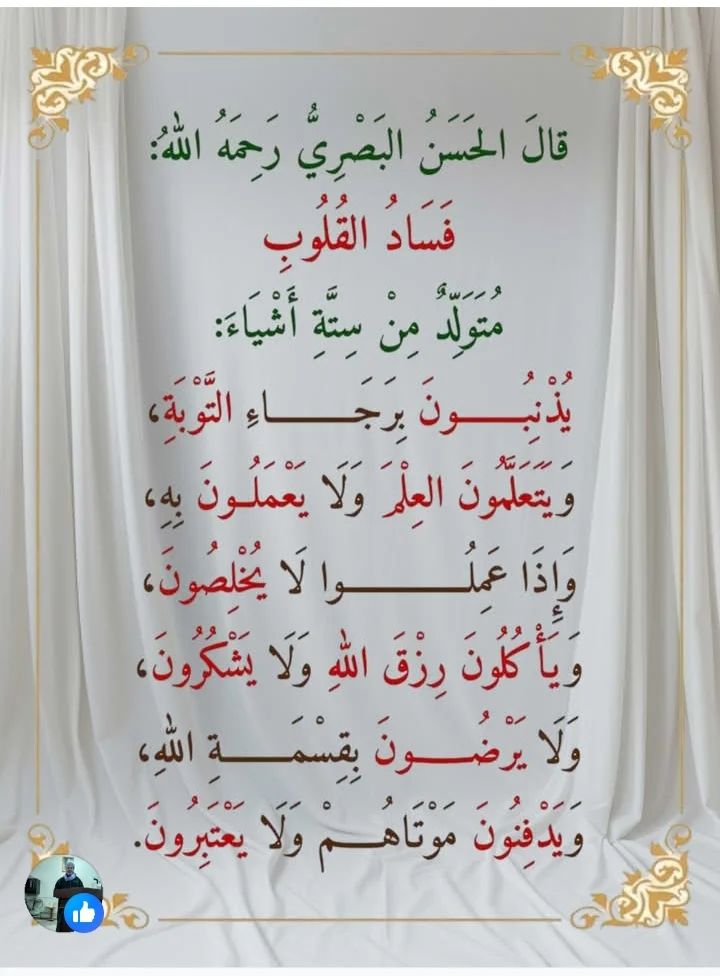 قالَ الحَسَنُ البَصْرِيُّ رَحِمَهُ اللهُ:
فَسَادُ القُلُوبِ
مُتَوَلِّدٌ مِنْ سِتَّةِ أَشْيَاءَ:
يُذْنِبُـــونَ بِرَجَـــاءِ التَّوْبَةِ،
وَيَتَعَلَّمُونَ العِلْمَ وَلَا يَعْمَلُـونَ بِهِ،
وَإِذَا عَمِلُـــوا لَا يُخْلِصُونَ،
وَيَأْكُلُونَ رِزْقَ اللهِ وَلَا يَشْكُرُونَ،
وَلَا يَرْضُـــونَ بِقِسْمَـــةِ اللهِ،
وَيَدْفِنُونَ مَوْتَاهُـــمْ وَلَا يَعْتَبِرُونَ.